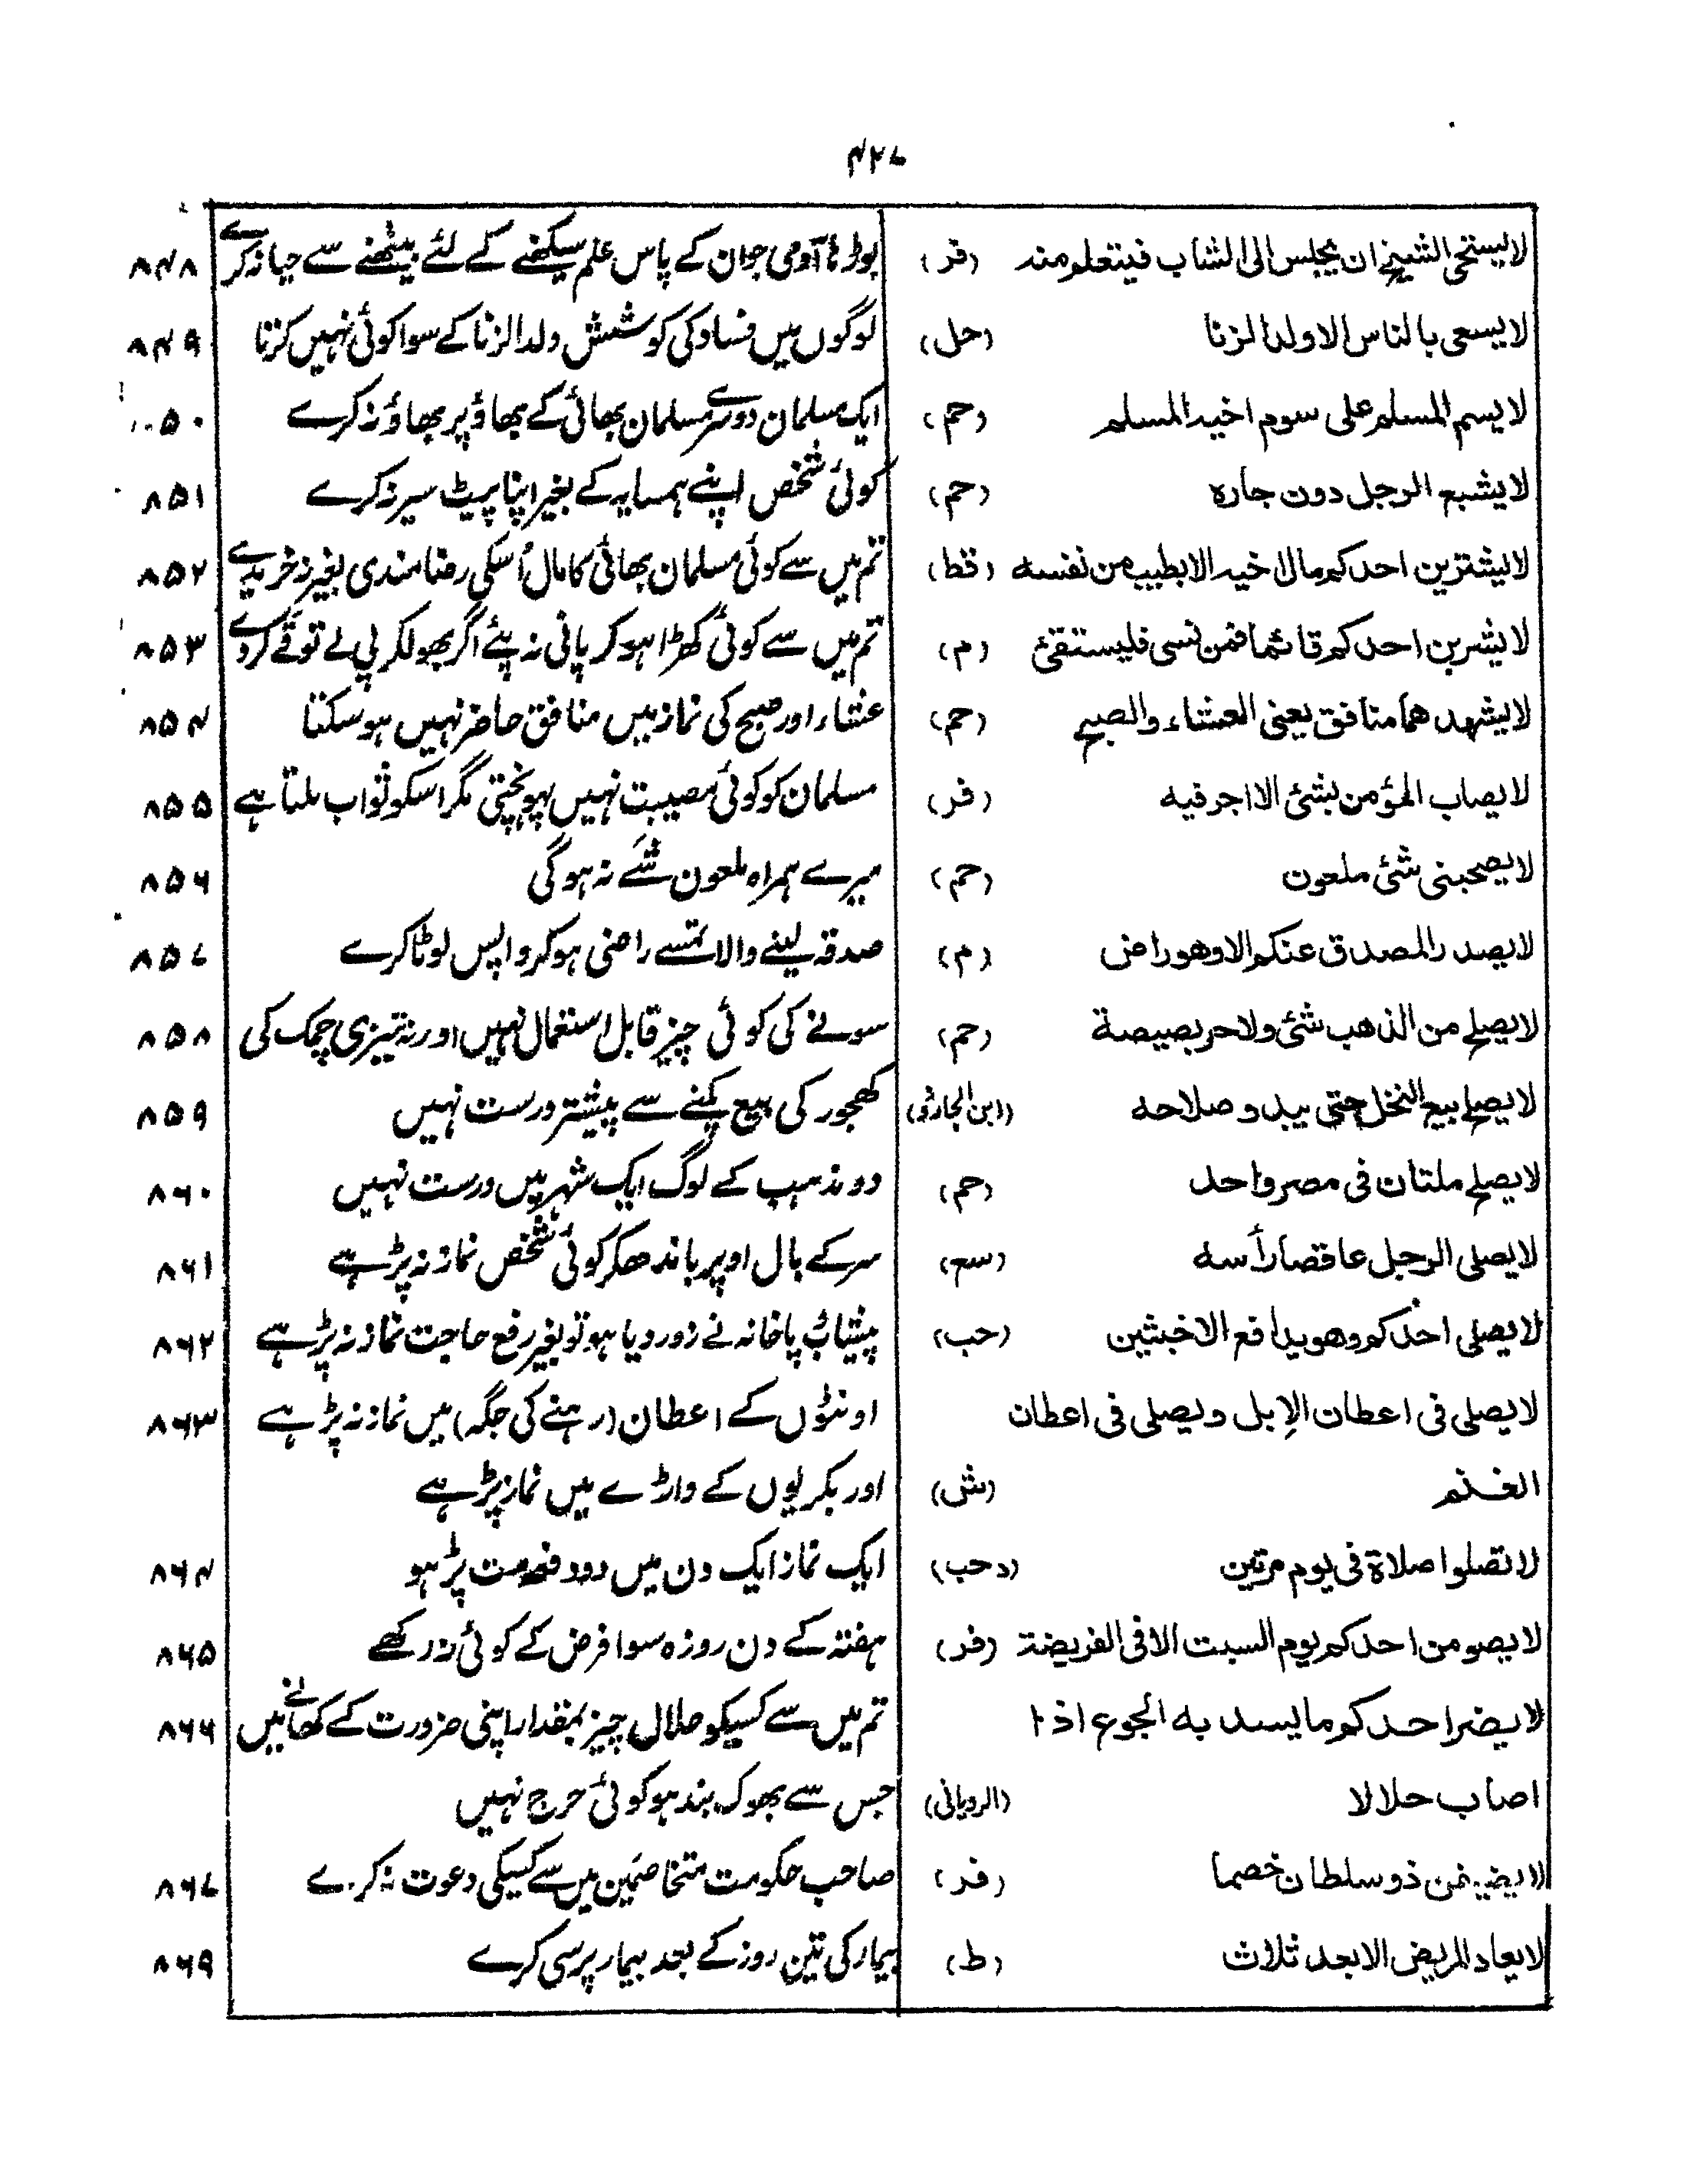 ۴۲۷
لا یستحی الشیخ ان یجلس الی الشاب فیتعلم منه (فر) بوڑھا آدمی جوان کے پاس علم سیکھنے کے لئے بیٹھنے سے حیا نہ کرے ۸۴۸
لا یسعی بالناس الا ولد الزنا (حل) لوگوں میں فساد کی کوشش ولد الزنا کے سوا کوئی نہیں کرتا ۸۴۹
لا یسم المسلم علی سوم اخیه المسلم (حم) ایک مسلمان دوسرے مسلمان بھائی کے بھاؤ پر بھاؤ نہ کرے ۵۰
لا یشبع الرجل دون جاره (حم) کوئی شخص اپنے ہمسایہ کے بغیر اپنا پیٹ سیر نہ کرے ۸۵۱
لا یشترین احدکم مال اخیه الا بطیب من نفسه (قط) تم میں سے کوئی مسلمان بھائی کا مال اُسکی رضا مندی بغیر نہ خریدے ۸۵۲
لا یشربن احدکم قائما فمن نسی فلیستقئ (م) تم میں سے کوئی کھڑا ہو کر پانی نہ پئے اگر بھولکر پی لے تو قے کر دے ۸۵۳
لا یشهدهما منافق یعنی العشاء والصبح (حم) عشاء اور صبح کی نماز میں منافق حاضر نہیں ہو سکتا ۸۵۴
لا یصاب المؤمن بشئ الا اجر فیه (فر) مسلمان کو کوئی مصیبت نہیں پہونچتی مگر اسکو ثواب ملتا ہے ۸۵۵
لا یصحبنی شئ ملعون (حم) میرے ہمراہ ملعون شے نہ ہو گی ۸۵۶
لا یصدر المصدق عنکم الا وهو راض (م) صدقہ لینے والا تمسے راضی ہو کر واپس لوٹا کرے ۸۵۷
لا یصلح من الذهب شئ ولا حربصیصة (حم) سونے کی کوئی چیز قابل استعمال نہیں اور نہ تیزی چمک کی ۸۵۸
لا یصلح بیع النخل حتی یبدو صلاحه (ابن الجارود) کھجور کی بیع پکنے سے پیشتر درست نہیں ۸۵۹
لا یصلح ملتان فی مصر واحد (حم) دو مذہب کے لوگ ایک شہر میں درست نہیں ۸۶۰
لا یصلی الرجل عاقصا رأسه (سع) سر کے بال اوپر باندھکر کوئی شخص نماز نہ پڑہے ۸۶۱
لا یصلی احدکم وهو یدافع الاخبثین (حب) پیشاب پاخانہ نے زور دیا ہو تو بغیر رفع حاجت نماز نہ پڑہے ۸۶۲
لا یصلی فی اعطان الإبل ویصلی فی اعطان اونٹوں کے اعطان (رہنے کی جگہ) میں نماز نہ پڑہے ۸۶۳
الغنم (ش) اور بکریوں کے واڑے میں نماز پڑہے
لا تصلوا صلاة فی یوم مرتین (دحب) ایک نماز ایک دن میں دو دفعہ مت پڑہو ۸۶۴
لا یصومن احدکم یوم السبت الا فی الفریضة (فر) ہفتہ کے دن روزہ سوا فرض کے کوئی نہ رکھے ۸۶۵
لا یضر احدکم ما یسد به الجوع اذا تم میں سے کسیکو حلال چیز بمقدار اپنی ضرورت کے کھانے میں ۸۶۶
اصاب حلالا (الرویانی) جس سے بھوک بند ہو کوئی حرج نہیں
لا یضیفن ذو سلطان خصما (فر) صاحب حکومت متخاصمین میں سے کسیکی دعوت نہ کرے ۸۶۷
لا یعاد المریض الا بعد ثلاث (ط) بیمار کی تین روز کے بعد بیمار پرسی کرے ۸۶۹